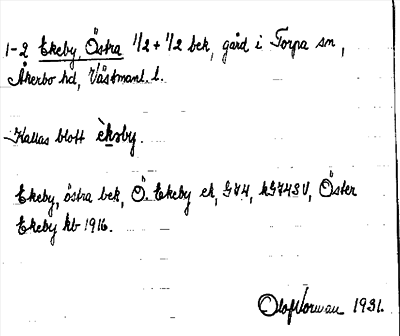 1-2 Ekeby, Östra 1/2 + 1/2 bek, gård i Torpa sn,
Åkerbo hd, Västmanl. l.
Kallas blott èkəby.
Ekeby, östra bek, Ö. Ekeby ek, G74, hG74SV, Öster
Ekeby kb 1916.
Olof Norman 1931.